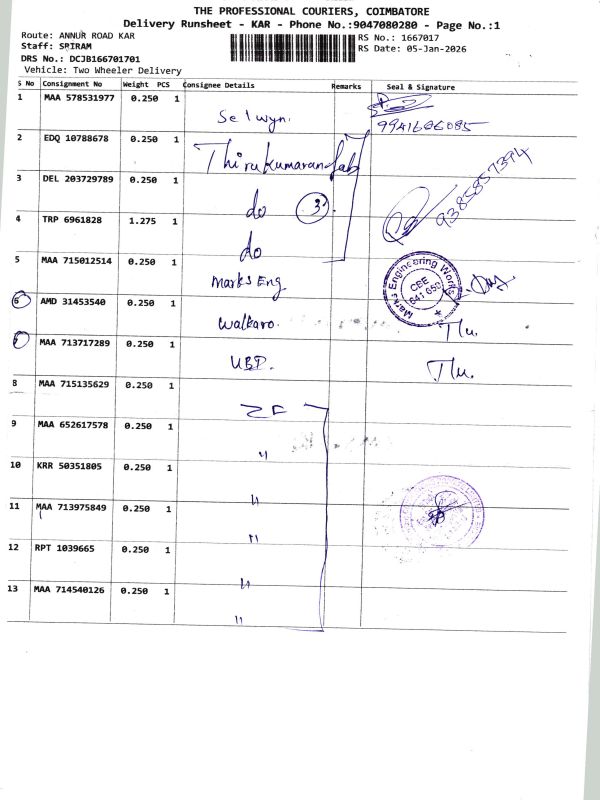 THE PROFESSIONAL COURIERS, COIMBATORE
Delivery Runsheet - KAR - Phone No.:9047080280 - Page No.:1
Route: ANNUR ROAD KAR
RS No.: 1667017
Staff: SRIRAM
RS Date: 05-Jan-2026
DRS No.: DCJB166701701
Vehicle: Two Wheeler Delivery
S No Consignment No Weight PCS Consignee Details Remarks Seal & Signature
1 MAA 578531977 0.250 1 Selwyn.
9941686085
2 EDQ 10788678 0.250 1 Thirukumaran fab
9385857394
3 DEL 203729789 0.250 1 do 3
4 TRP 6961828 1.275 1 do
5 MAA 715012514 0.250 1 Marks Eng
Marks Engineering Works
CBE
641 659
6 AMD 31453540 0.250 1 Walkaro. Tlu.
7 MAA 713717289 0.250 1 UBP. Tlu.
8 MAA 715135629 0.250 1 ZF
9 MAA 652617578 0.250 1 "
10 KRR 50351805 0.250 1 "
11 MAA 713975849 0.250 1 "
12 RPT 1039665 0.250 1 "
13 MAA 714540126 0.250 1 "